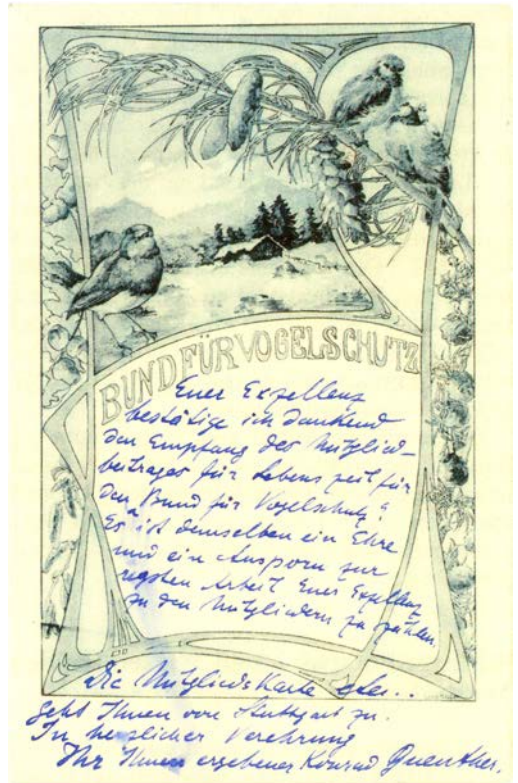 BUND FÜR VOGELSCHUTZ
Euer Expellenz
bestätige ich dankend
den Empfang des Mitglied-
beitrages für Lebenszeit für
den "Bund für Vogelschutz".
Es ist demselben ein Ehre
und ein Ansporn zur
regsten Arbeit Euer Expellenz
zu den Mitgliedern zu zählen.
Die Mitgliedskarte
geht Ihnen von Stuttgart zu.
In herzlicher Verehrung
Ihr Ihnen ergebener Konrad Guenther.